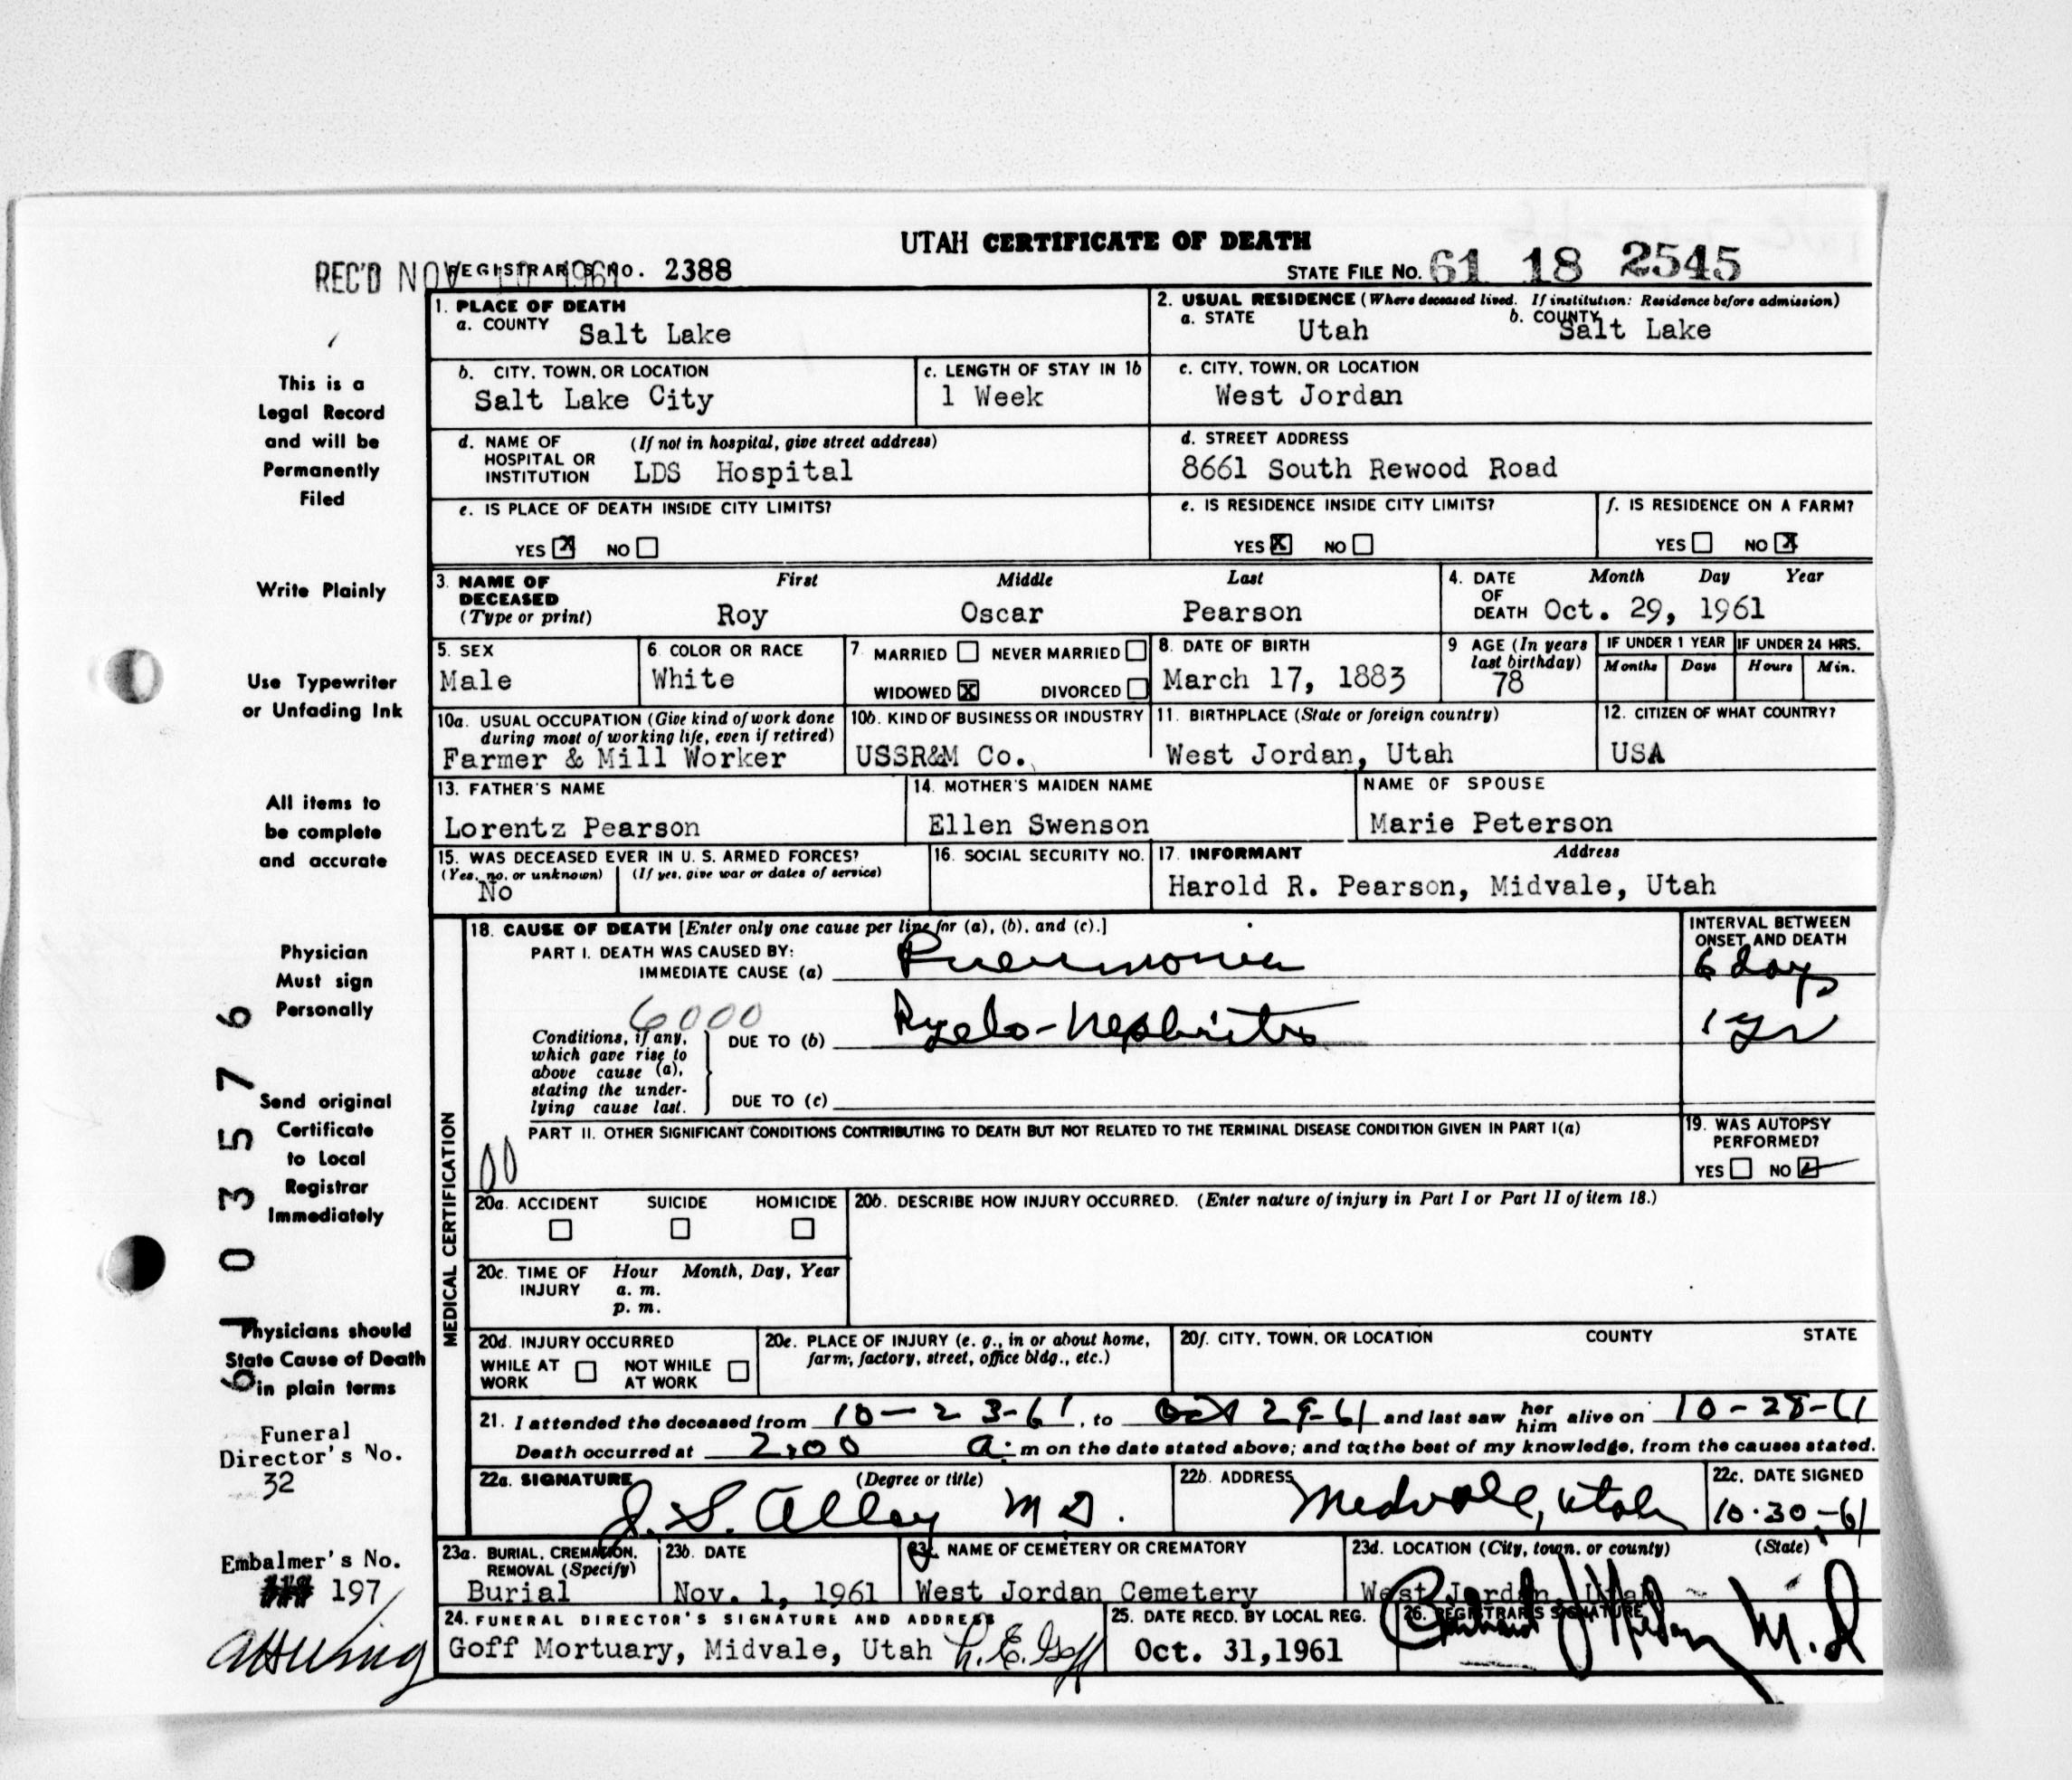 UTAH CERTIFICATE OF DEATH
REC'D NOV 10 1961 REGISTRAR'S NO. 2388
STATE FILE No. 61 18 2545
This is a
Legal Record
and will be
Permanently
Filed
Write Plainly
Use Typewriter
or Unfading Ink
All items to
be complete
and accurate
Physician
Must sign
Personally
Send original
Certificate
to Local
Registrar
Immediately
Physicians should
State Cause of Death
in plain terms
61 035776
Funeral
Director's No.
32
Embalmer's No.
197
1. PLACE OF DEATH
a. COUNTY Salt Lake
2. USUAL RESIDENCE (Where deceased lived. If institution: Residence before admission)
a. STATE Utah b. COUNTY Salt Lake
b. CITY, TOWN, OR LOCATION
Salt Lake City
c. LENGTH OF STAY IN 1b
1 Week
c. CITY, TOWN, OR LOCATION
West Jordan
d. NAME OF HOSPITAL OR INSTITUTION (If not in hospital, give street address)
LDS Hospital
d. STREET ADDRESS
8661 South Rewood Road
e. IS PLACE OF DEATH INSIDE CITY LIMITS?
YES X NO
e. IS RESIDENCE INSIDE CITY LIMITS?
YES X NO
f. IS RESIDENCE ON A FARM?
YES NO X
3. NAME OF DECEASED (Type or print)
First Middle Last
Roy Oscar Pearson
4. DATE OF DEATH Month Day Year
Oct. 29, 1961
5. SEX
Male
6. COLOR OR RACE
White
7. MARRIED NEVER MARRIED
WIDOWED X DIVORCED
8. DATE OF BIRTH
March 17, 1883
9 AGE (In years last birthday)
78
IF UNDER 1 YEAR IF UNDER 24 HRS.
Months Days Hours Min.
10a. USUAL OCCUPATION (Give kind of work done during most of working life, even if retired)
Farmer & Mill Worker
10b. KIND OF BUSINESS OR INDUSTRY
USSR&M Co.
11. BIRTHPLACE (State or foreign country)
West Jordan, Utah
12. CITIZEN OF WHAT COUNTRY?
USA
13. FATHER'S NAME
Lorentz Pearson
14. MOTHER'S MAIDEN NAME
Ellen Swenson
NAME OF SPOUSE
Marie Peterson
15. WAS DECEASED EVER IN U. S. ARMED FORCES?
(Yes, no, or unknown) (If yes, give war or dates of service)
No
16. SOCIAL SECURITY NO.
17. INFORMANT Address
Harold R. Pearson, Midvale, Utah
MEDICAL CERTIFICATION
18. CAUSE OF DEATH [Enter only one cause per line for (a), (b), and (c).]
PART I. DEATH WAS CAUSED BY:
IMMEDIATE CAUSE (a) Pneumonia
INTERVAL BETWEEN ONSET AND DEATH
6 days
6000
Conditions, if any, which gave rise to above cause (a), stating the underlying cause last.
DUE TO (b) Pyelo-nephritis
1 yr
DUE TO (c)
PART II. OTHER SIGNIFICANT CONDITIONS CONTRIBUTING TO DEATH BUT NOT RELATED TO THE TERMINAL DISEASE CONDITION GIVEN IN PART I(a)
00
19. WAS AUTOPSY PERFORMED?
YES NO
20a. ACCIDENT SUICIDE HOMICIDE
20b. DESCRIBE HOW INJURY OCCURRED. (Enter nature of injury in Part I or Part II of item 18.)
20c. TIME OF INJURY Hour Month, Day, Year
a. m.
p. m.
20d. INJURY OCCURRED
WHILE AT WORK NOT WHILE AT WORK
20e. PLACE OF INJURY (e. g., in or about home, farm, factory, street, office bldg., etc.)
20f. CITY, TOWN, OR LOCATION COUNTY STATE
21. I attended the deceased from 10-23-61, to Oct 29-61 and last saw her him alive on 10-28-61
Death occurred at 2:00 a. m on the date stated above; and to the best of my knowledge, from the causes stated.
22a. SIGNATURE (Degree or title)
J. S. Alley M D.
22b. ADDRESS
Midvale, Utah
22c. DATE SIGNED
10-30-61
23a. BURIAL, CREMATION, REMOVAL (Specify)
Burial
23b. DATE
Nov. 1, 1961
23c. NAME OF CEMETERY OR CREMATORY
West Jordan Cemetery
23d. LOCATION (City, town, or county) (State)
West Jordan, Utah
24. FUNERAL DIRECTOR'S SIGNATURE AND ADDRESS
Goff Mortuary, Midvale, Utah L. E. Goff
25. DATE RECD. BY LOCAL REG.
Oct. 31,1961
26. REGISTRAR'S SIGNATURE
M. D